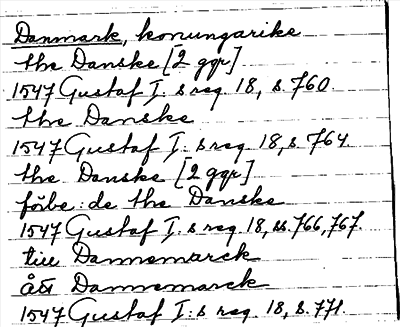 Danmark, konungarike
the Danske [2 ggr]
1547 Gustaf I:s reg. 18, s. 760.
the Danske
1547 Gustaf I:s reg. 18, s. 764.
the Danske [2 ggr]
förbe: de the Danske
1547 Gustaf I:s reg. 18, ss. 766, 767.
till Dannemarck
ått Dannemarck
1547 Gustaf I:s reg. 18, s. 771.